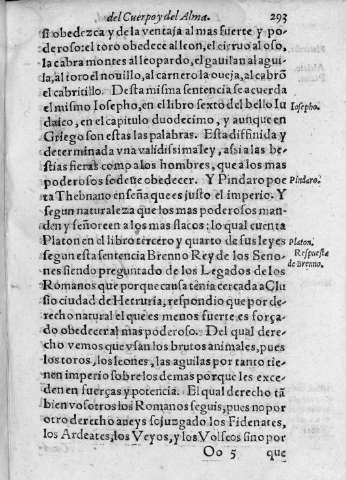 del Cuerpo y del Alma. 293
si obedezca y de la ventaja al mas fuerte y po-
deroso: el toro obedece al leon, el cieruo al oso,
la cabra montes al leopardo, el gauilan al agui
la, al toro el nouillo, al carnero la oueja, al cabrõ
el cabritillo. Desta misma sentencia se acuerda
el mismo Iosepho, en el libro sexto del bello Iu Iosepho.
daico, en el capitulo duodecimo, y aunque en
Griego son estas las palabras. Esta diffinida y
determinada vna validissima ley, assi a las be-
stias fieras como a los hombres, que a los mas
poderosos se deue obedecer. Y Pindaro poe Pindaro.
ta Thebano enseña que es justo el imperio. Y
segun naturaleza que los mas poderosos man-
den y señoreen a los mas flacos: lo qual cuenta
Platon en el libro tercero y quarto de sus leyes Platon.
segun esta sentencia Brenno Rey de los Seno- Respuesta
nes siendo preguntado de los Legados de los de Brenno.
Romanos que porque causa tenia cercada a Clu
sio ciudad de Hetruria, respondio que por de-
recho natural el que es menos fuerte es força-
do obedecer al mas poderoso. Del qual dere-
cho vemos que vsan los brutos animales, pues
los toros, los leones, las aguilas por tanto tie-
nen imperio sobre los demas porque les exce-
den en fuerças y potencia. El qual derecho tã
bien vosotros los Romanos seguis, pues no por
otro derecho aueys sojuzgado los Fidenates,
los Ardeates, los Veyos, y los Volscos sino por
Oo 5 que